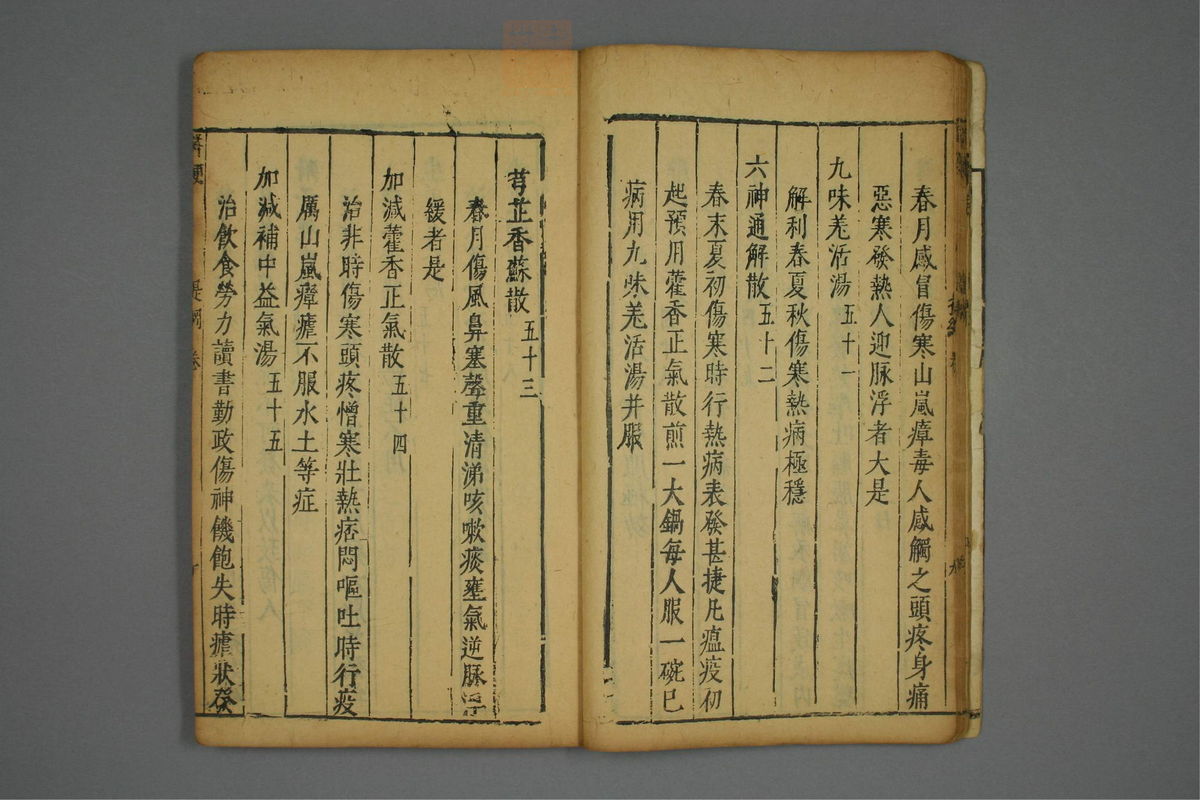 春月感冒傷寒山嵐瘴毒人感觸之頭疼身痛
惡寒發熱人迎脉浮者大是
九味羌活湯五十一
解利春夏秋傷寒熱病極穩
六神通解散五十二
春末夏初傷寒時行熱病表發甚捷凡瘟疫初
起預用藿香正氣散煎一大鍋每人服一碗已
病用九味羌活湯并服
芎芷香蘇散五十三
春月傷風鼻塞聲重清涕咳嗽痰壅氣逆脉浮
緩者是
加減藿香正氣散五十四
治非時傷寒頭疼憎寒壯熱痞悶嘔吐時行疫
厲山嵐瘴瘧不服水土等症
加減補中益氣湯五十五
治飲食勞力讀書勤政傷神饑飽失時瘧狀發